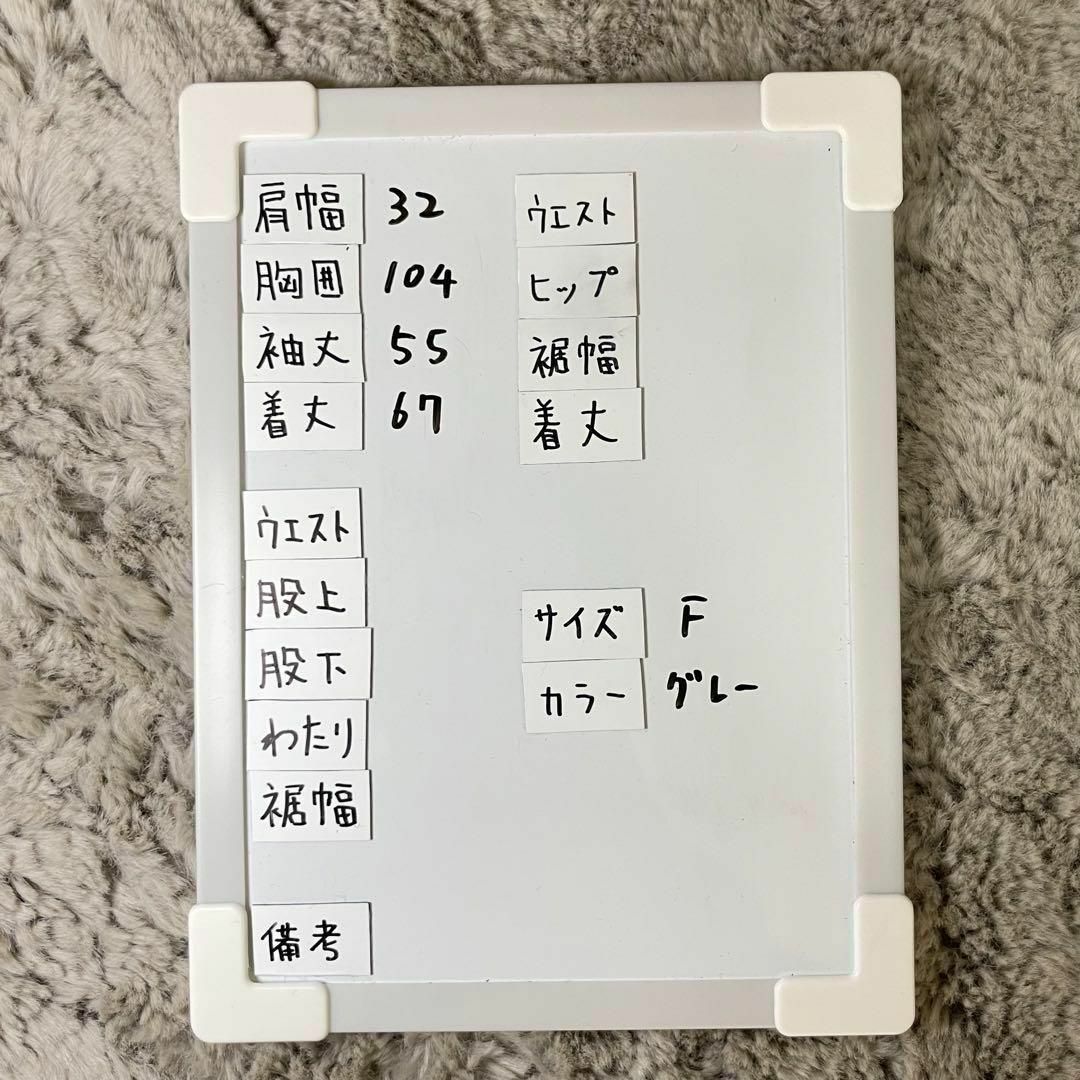 肩幅 32
胸囲 104
袖丈 55
着丈 67
ウエスト
股上
股下
わたり
裾幅
備考
ウエスト
ヒップ
裾幅
着丈
サイズ F
カラー グレー